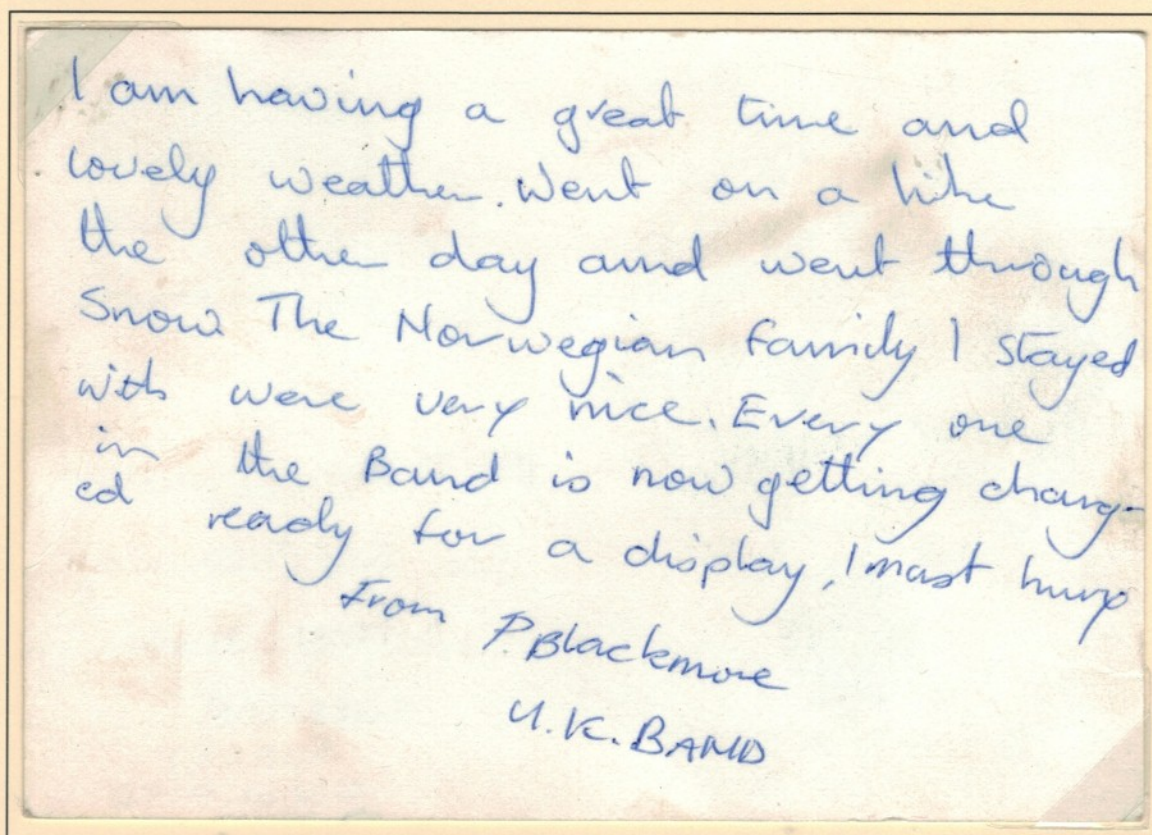 I am having a great time and
lovely weather. Went on a hike
the other day and went through
Snow. The Norwegian family I stayed
with were very nice. Every one
in the Band is now getting chang-
ed ready for a display, I must hurry
From P. Blackmore
U.K. BAND